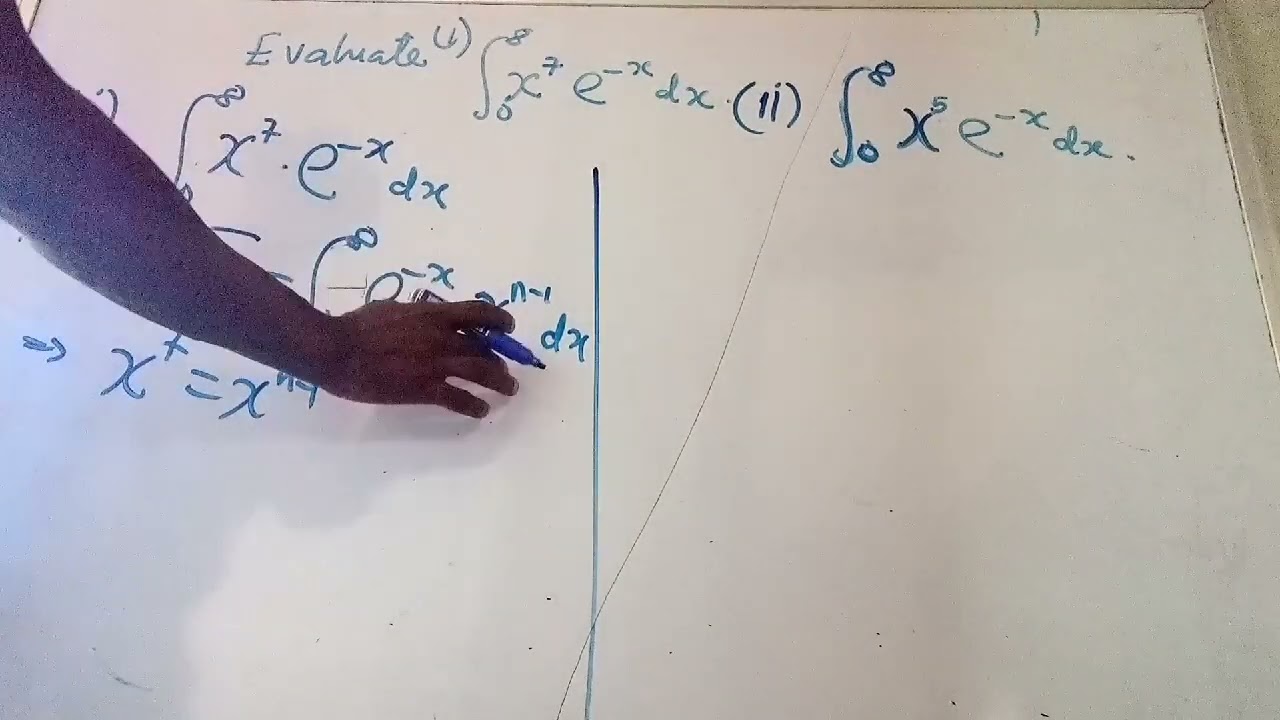 Evaluate (i) ∫₀^∞ x⁷ e^{-x} dx. (ii) ∫₀^∞ x⁵ e^{-x} dx.
) ∫₀^∞ x⁷ · e^{-x} dx
= ∫^∞ e^{-x} x^{n-1} dx
⇒ x⁷ = x^{n-1}